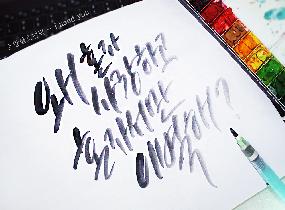 왜 혼자
사랑하고
혼자서만
이별해?